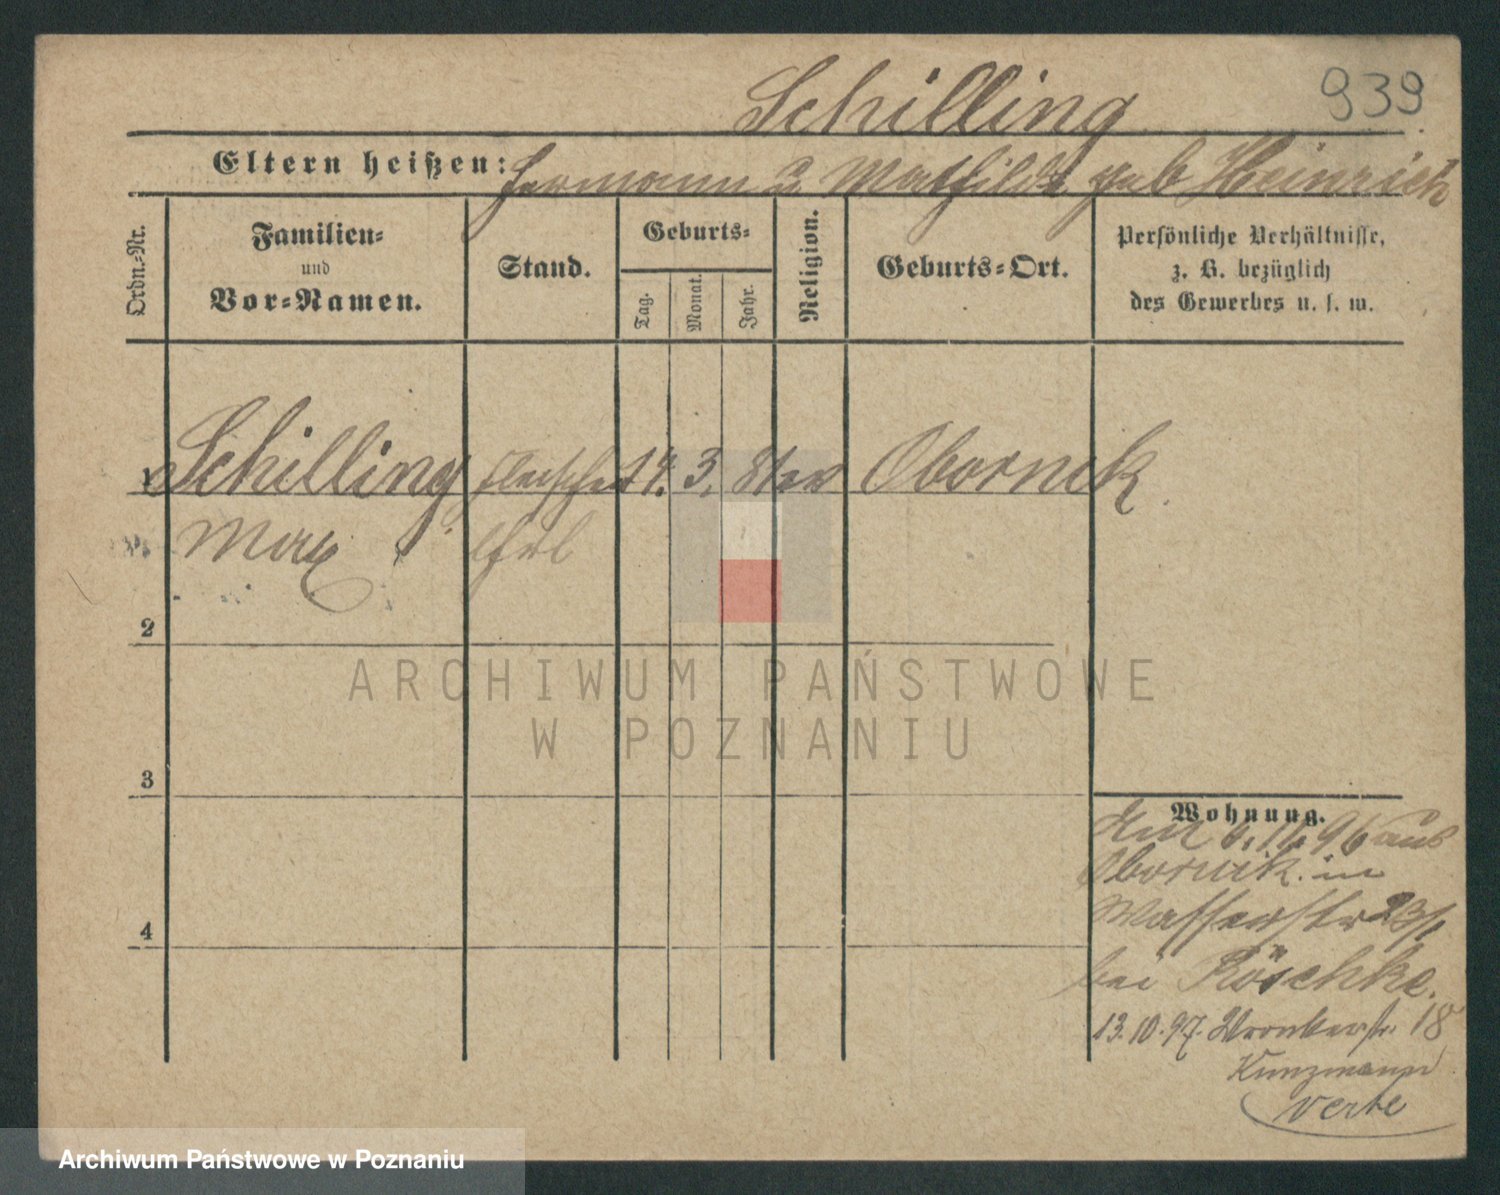 939
Schilling
Eltern heißen: Hermann u Mathilde geb Heinrich
Ordn.-Nr.
Familien-
und
Vor-Namen.
Stand.
Geburts-
Tag.
Monat.
Jahr.
Religion.
Geburts-Ort.
Persönliche Verhältnisse,
z. B. bezüglich
des Gewerbes u. s. w.
1 Schilling Fleischer 14. 3. Obornik
Max
2
3
4
Wohnung.
Am 6. 11. 96 aus
Obornik in
Wasserstr 23/I
bei Röschke.
13.10.97. Wronkerstr. 18
Kunzmann
verte
ARCHIWUM PAŃSTWOWE
W POZNANIU
Archiwum Państwowe w Poznaniu